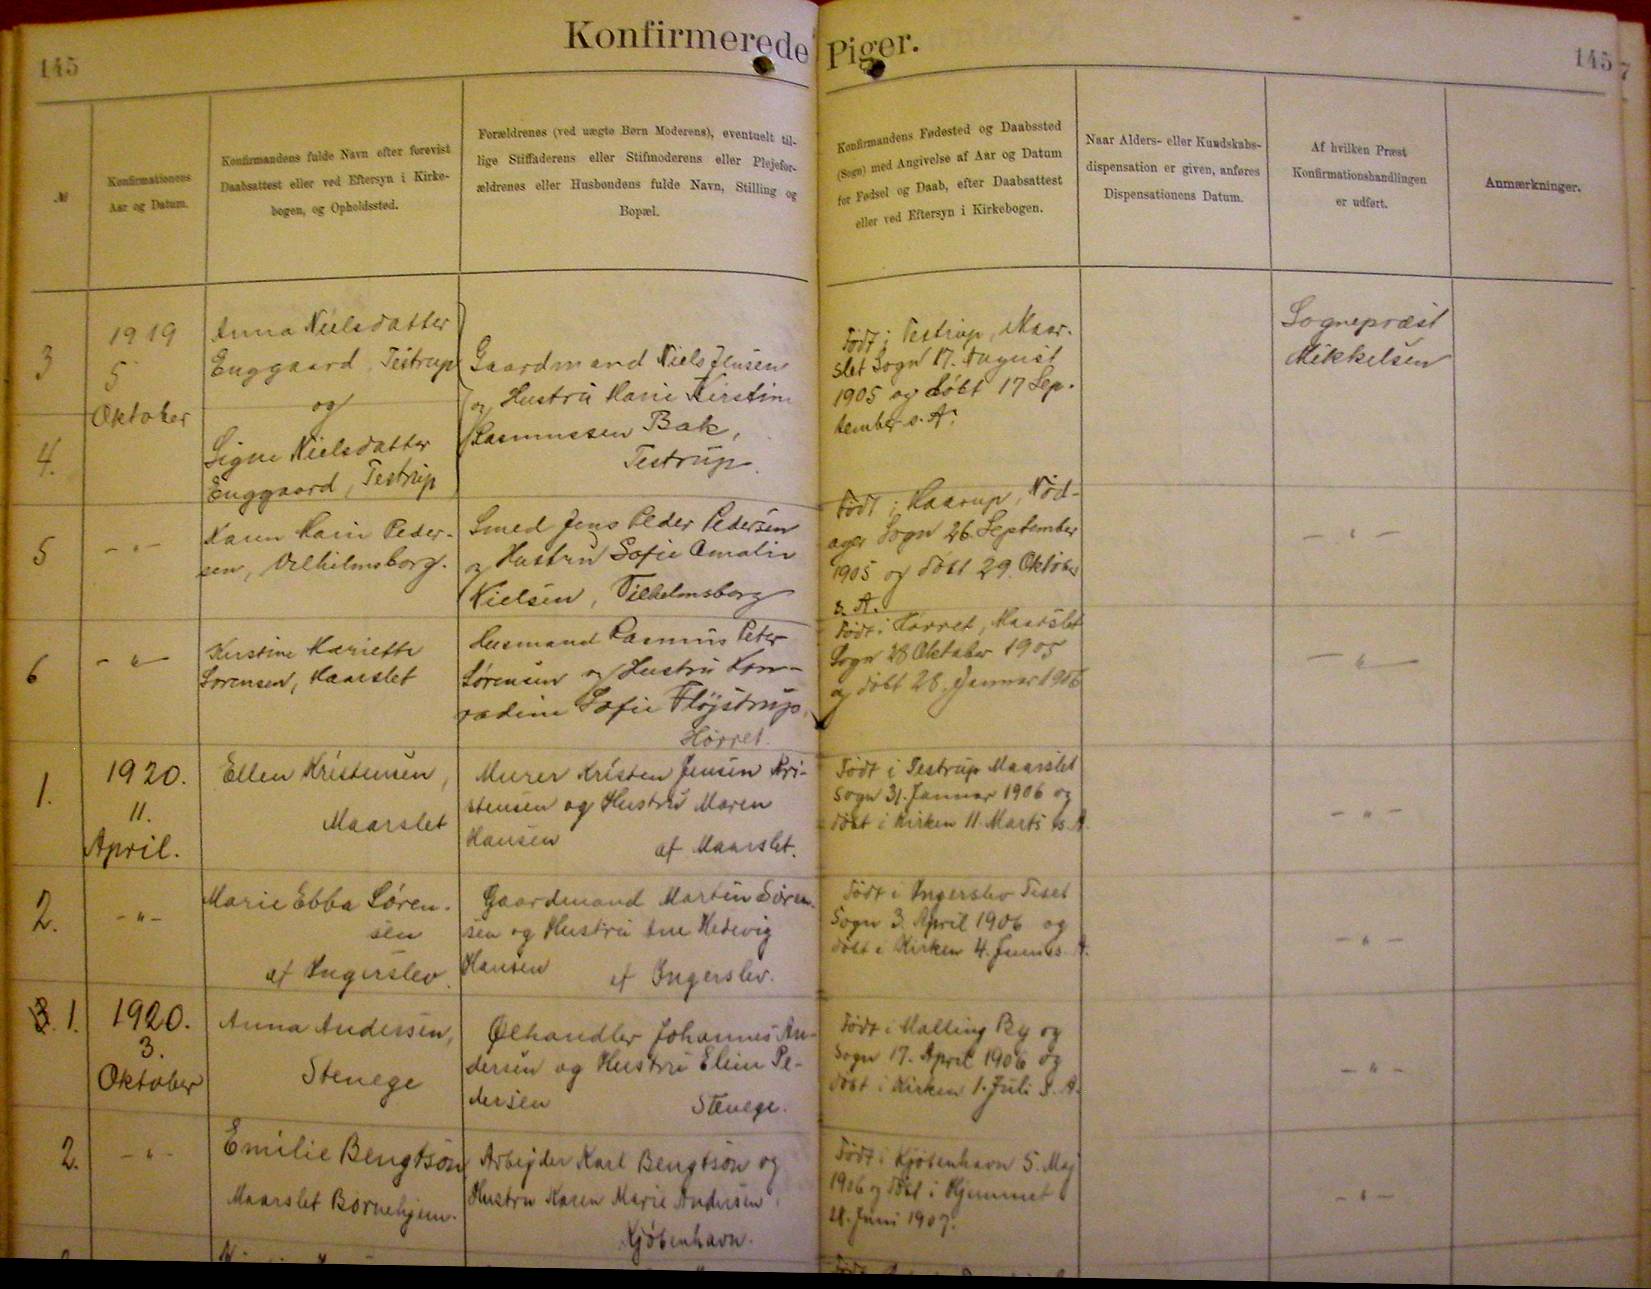 Konfirmerede Piger.
145
145
7
№
Konfirmationens
Aar og Datum.
Konfirmandens fulde Navn efter forevist
Daabsattest eller ved Eftersyn i Kirke-
bogen, og Opholdssted.
Forældrenes (ved uægte Børn Moderens), eventuelt til-
lige Stiffaderens eller Stifmoderens eller Plejefor-
ældrenes eller Husbondens fulde Navn, Stilling og
Bopæl.
Konfirmandens Fødested og Daabssted
(Sogn) med Angivelse af Aar og Datum
for Fødsel og Daab, efter Daabsattest
eller ved Eftersyn i Kirkebogen.
Naar Alders- eller Kundskabs-
dispensation er given, anføres
Dispensationens Datum.
Af hvilken Præst
Konfirmationshandlingen
er udført.
Anmærkninger.
3
4.
1919
5
Oktober
Anna Nielsdatter
Enggaard, Testrup
og
Signe Nielsdatter
Enggaard, Testrup
Gaardmand Niels Jensen
og Hustru Marie Kirstine
Rasmussen Bak,
Testrup.
Født i Testrup, Maar-
slet Sogn 17. August
1905 og døbt 17 Sep-
tember s. A.
Sognepræst
Mikkelsen
5
- " -
Karen Marie Peder-
sen, Vilhelmsborg.
Smed Jens Peder Pedersen
og Hustru Sofie Amalie
Nielsen, Vilhelmsborg
Født i Maarup, Nød-
ager Sogn 26 September
1905 og døbt 29. Oktober
s. A.
- " -
6
- " -
Kirstine Mariette
Sørensen, Maarslet
Husmand Rasmus Peter
Sørensen og Hustru Kon-
radine Sofie Fløjstrup,
Hørret.
Født i Hørret, Maarslet
Sogn 28 Oktober 1905
og døbt 28. Januar 1906
- " -
1.
1920.
11.
April.
Ellen Kristensen,
Maarslet
Murer Kristen Jensen Kri-
stensen og Hustru Maren
Hansen af Maarslet.
Født i Testrup Maarslet
Sogn 31. Januar 1906 og
døbt i Kirken 11. Marts s. A.
- " -
2.
- " -
Marie Ebba Søren-
sen
af Ingerslev.
Gaardmand Martin Søren-
sen og Hustru Ane Hedevig
Hansen af Ingerslev.
Født i Ingerslev Tiset
Sogn 3. April 1906 og
døbt i Kirken 4. Juni s. A.
- " -
3. 1.
1920.
3.
Oktober
Anna Andersen,
Stenege
Ølhandler Johannes An-
dersen og Hustru Eline Pe-
dersen Stenege.
Født i Malling By og
Sogn 17. April 1906 og
døbt i Kirken 1. Juli s. A.
- " -
2.
- " -
Emilie Bengtson
Maarslet Børnehjem.
Arbejder Karl Bengtson og
Hustru Karen Marie Andersen,
Kjøbenhavn.
Født i Kjøbenhavn 5. Maj
1906 og døbt i Hjemmet
28. Juni 1907.
- " -